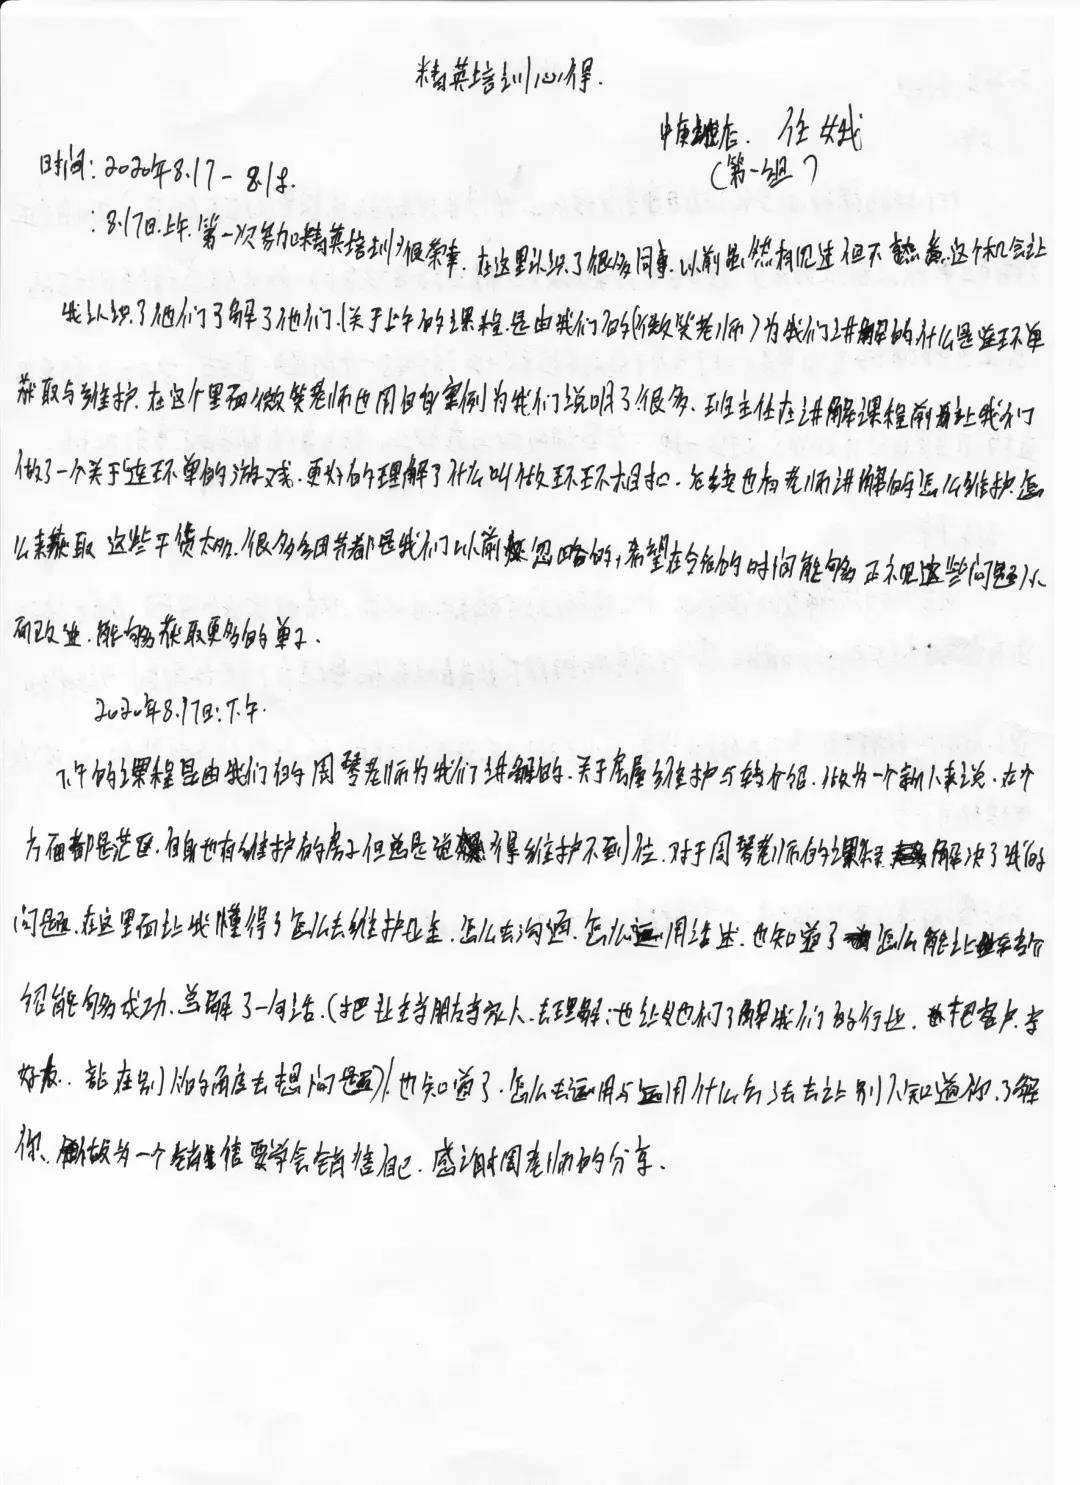 精英培训心得.
中庚店. 任娥
(第一组)
时间:2020年8.17-8.18.
:8.17日上午.第一次参加精英培训很荣幸.在这里认识了很多同事.以前虽然相见过但不熟悉.这个机会让
我认识了他们了解了他们.(关于上午的课程.是由我们的(微笑老师)为我们讲解的.什么是连环单
获取与维护.在这个里面微笑老师也用自身案例为我们说明了很多.班主任在讲解课程前着让我们
做了一个关于连环单的游戏.更好的理解了什么叫做环环相扣.包括也有老师讲解的怎么维护.怎
么来获取 这些干货太多.很多细节都是我们以前忽略的,希望在今后的时间能够正视这些问题从
而改进.能够获取更多的单子.
2020年8.17日:下午.
下午的课程是由我们的周琴老师为我们讲解的.关于房屋维护与转介绍.做为一个新人来说.在个
方面都是茫区.自身也有维护的房子但总是觉得维护不到位.对于周琴老师的课程解决了我的
问题.在这里面让我懂得了怎么去维护业主.怎么去沟通.怎么运用话述.也知道了怎么能让转介
绍能够成功.总解了一句话.(把业主当朋友当家人.去理解:也让他们了解我们的行业.把客户当
好友.站在别人的角度去想问题)也知道了.怎么去运用与运用什么办法去让别人知道你.了解
你.做为一个销售要学会销售自己.感谢周老师的分享.